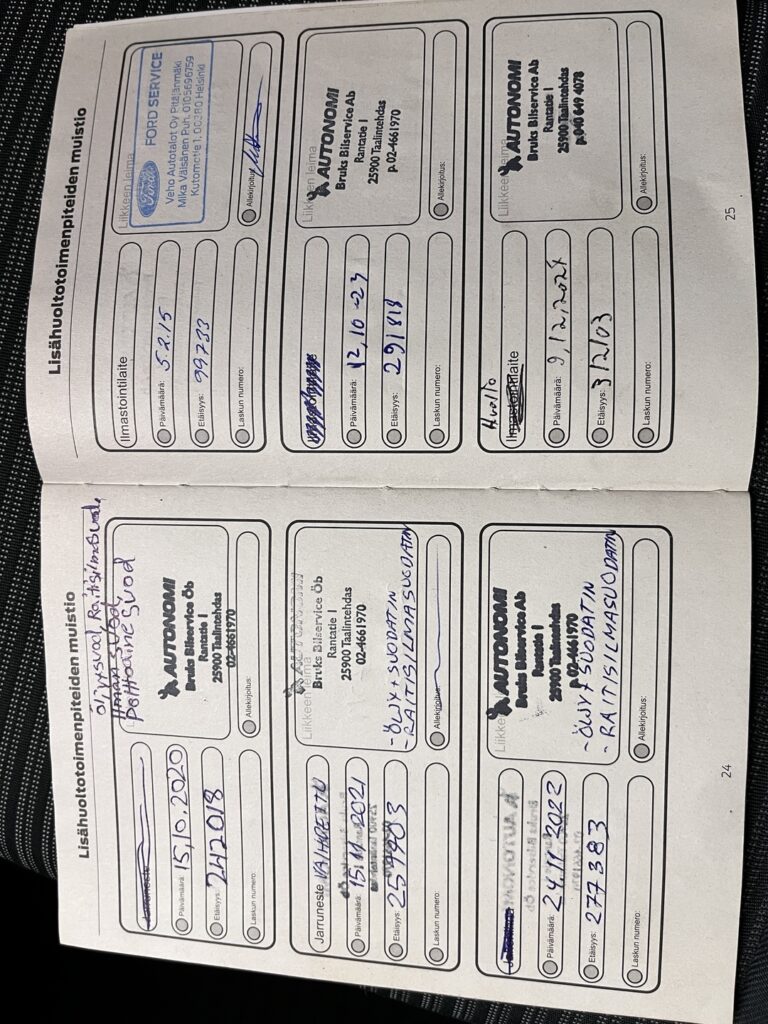 Lisähuoltotoimenpiteiden muistio
öljysuod, Raitisilmasuod,
Ilman suod
Polttoaine suod
Päivämäärä: 15,10.2020
Etäisyys: 242018
Laskun numero:
AUTONOMI
Bruks Bilservice Öb
Rantatie 1
25900 Taalintehdas
02-4661970
Allekirjoitus:
Jarruneste VAIHDETTU
Päivämäärä: 15,11 2021
Etäisyys: 259403
Laskun numero:
Liikkeen leima
AUTONOMI
Bruks Bilservice Öb
Rantatie 1
25900 Taalintehdas
02-4661970
- ÖLJY + SUODATIN
- RAITISILMASUODATIN
Allekirjoitus:
Päivämäärä: 24,11 2022
Etäisyys: 277383
Laskun numero:
AUTONOMI
Bruks Bilservice Ab
Rantatie 1
25900 Taalintehdas
p. 02-4661970
- ÖLJY + SUODATIN
- RAITISILMASUODATIN
Allekirjoitus:
24
Lisähuoltotoimenpiteiden muistio
Ilmastointilaite
Päivämäärä: 5.2.15
Etäisyys: 99733
Laskun numero:
Liikkeen leima
Ford
FORD SERVICE
Veho Autotalot Oy Pitäjänmäki
Mika Väisänen Puh. 0105696759
Kutomotie 1, 00380 Helsinki
Allekirjoitus:
Päivämäärä: 12,10 -23
Etäisyys: 291818
Laskun numero:
Liikkeen leima
AUTONOMI
Bruks Bilservice Ab
Rantatie 1
25900 Taalintehdas
p. 02-4661970
Allekirjoitus:
Huolto
Ilmastointilaite
Päivämäärä: 9,12,2024
Etäisyys: 312103
Laskun numero:
Liikkeen leima
AUTONOMI
Bruks Bilservice Ab
Rantatie 1
25900 Taalintehdas
p.040 649 4078
Allekirjoitus:
25